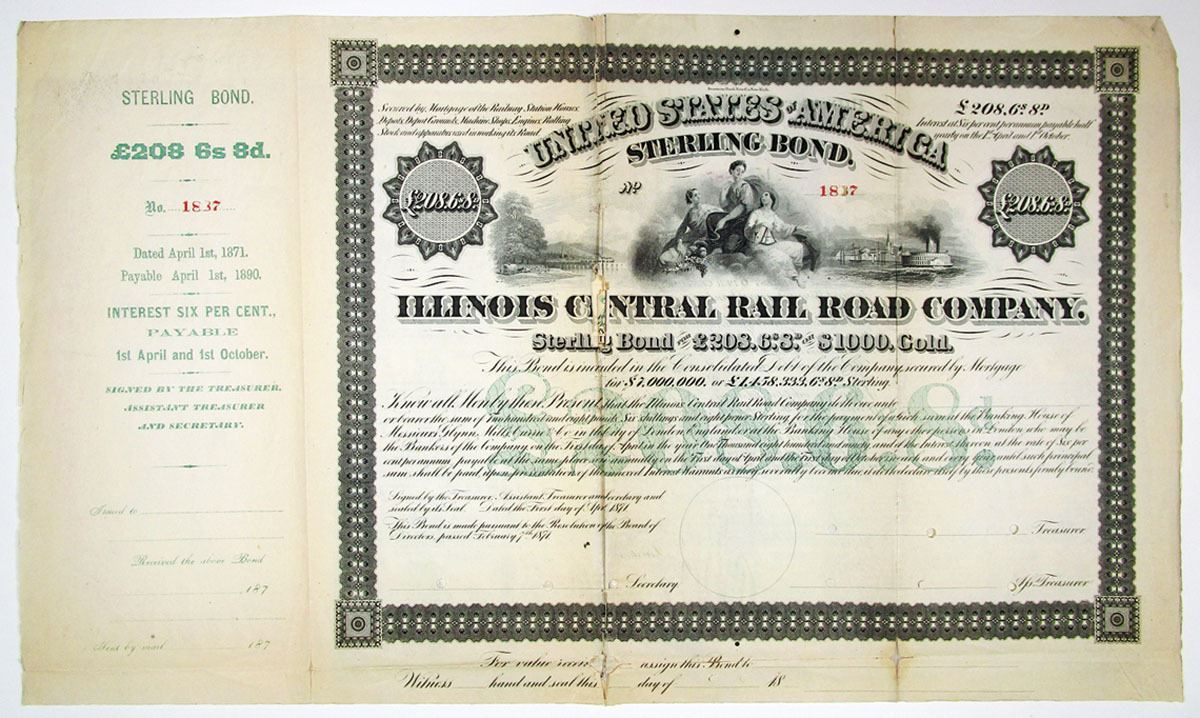 STERLING BOND.
£208 6s 8d.
No. 1837
Dated April 1st, 1871.
Payable April 1st, 1890.
INTEREST SIX PER CENT.,
PAYABLE
1st April and 1st October.
SIGNED BY THE TREASURER,
ASSISTANT TREASURER
AND SECRETARY.
Issued to
Received the above Bond
187
Sent by mail 187
Secured by Mortgage of the Railway Station Houses,
Depots, Depot Grounds, Machine Shops, Engines, Rolling
Stock and apparatus used in working its Road.
£208,6s8D
Interest at Six per cent per annum payable half
yearly on the 1st April and 1st October.
UNITED STATES OF AMERICA
STERLING BOND.
No 1837
£208.6s8d
£208.6s8d
ILLINOIS CENTRAL RAIL ROAD COMPANY.
Sterling Bond FOR £208,6s8D OR $1000. Gold.
This Bond is included in the Consolidated Debt of the Company, secured by Mortgage
for $7,000,000. or £1,458,333,6s8D Sterling.
£208.6.8d.
Know all Men by these Presents, that the Illinois Central Rail Road Company is to owe unto
or bearer the sum of Two hundred and eight pounds Six shillings and eight pence Sterling for the payment of which sum at the Banking House of
Messieurs Glynn, Mills, Currie & Co. in the City of London England or at the Banking House of any other person in London who may be
the Bankers of the Company, on the First day of April in the year One Thousand eight hundred and ninety and of the Interest thereon at the rate of Six per
cent per annum payable at the same place semi-annually on the First day of April and the First day of October in each and every year until such principal
sum shall be paid upon presentation of the annexed Interest Warrants as they severally become due, it doth declare itself by these presents firmly bound.
Signed by the Treasurer, Assistant Treasurer and Secretary and
sealed by its Seal. Dated the First day of April 1871
This Bond is made pursuant to the Resolution of the Board of
Directors, passed February 7th 1871
Treasurer
Secretary
Asst Treasurer
For value received assign this Bond to
Witness hand and seal this day of 18